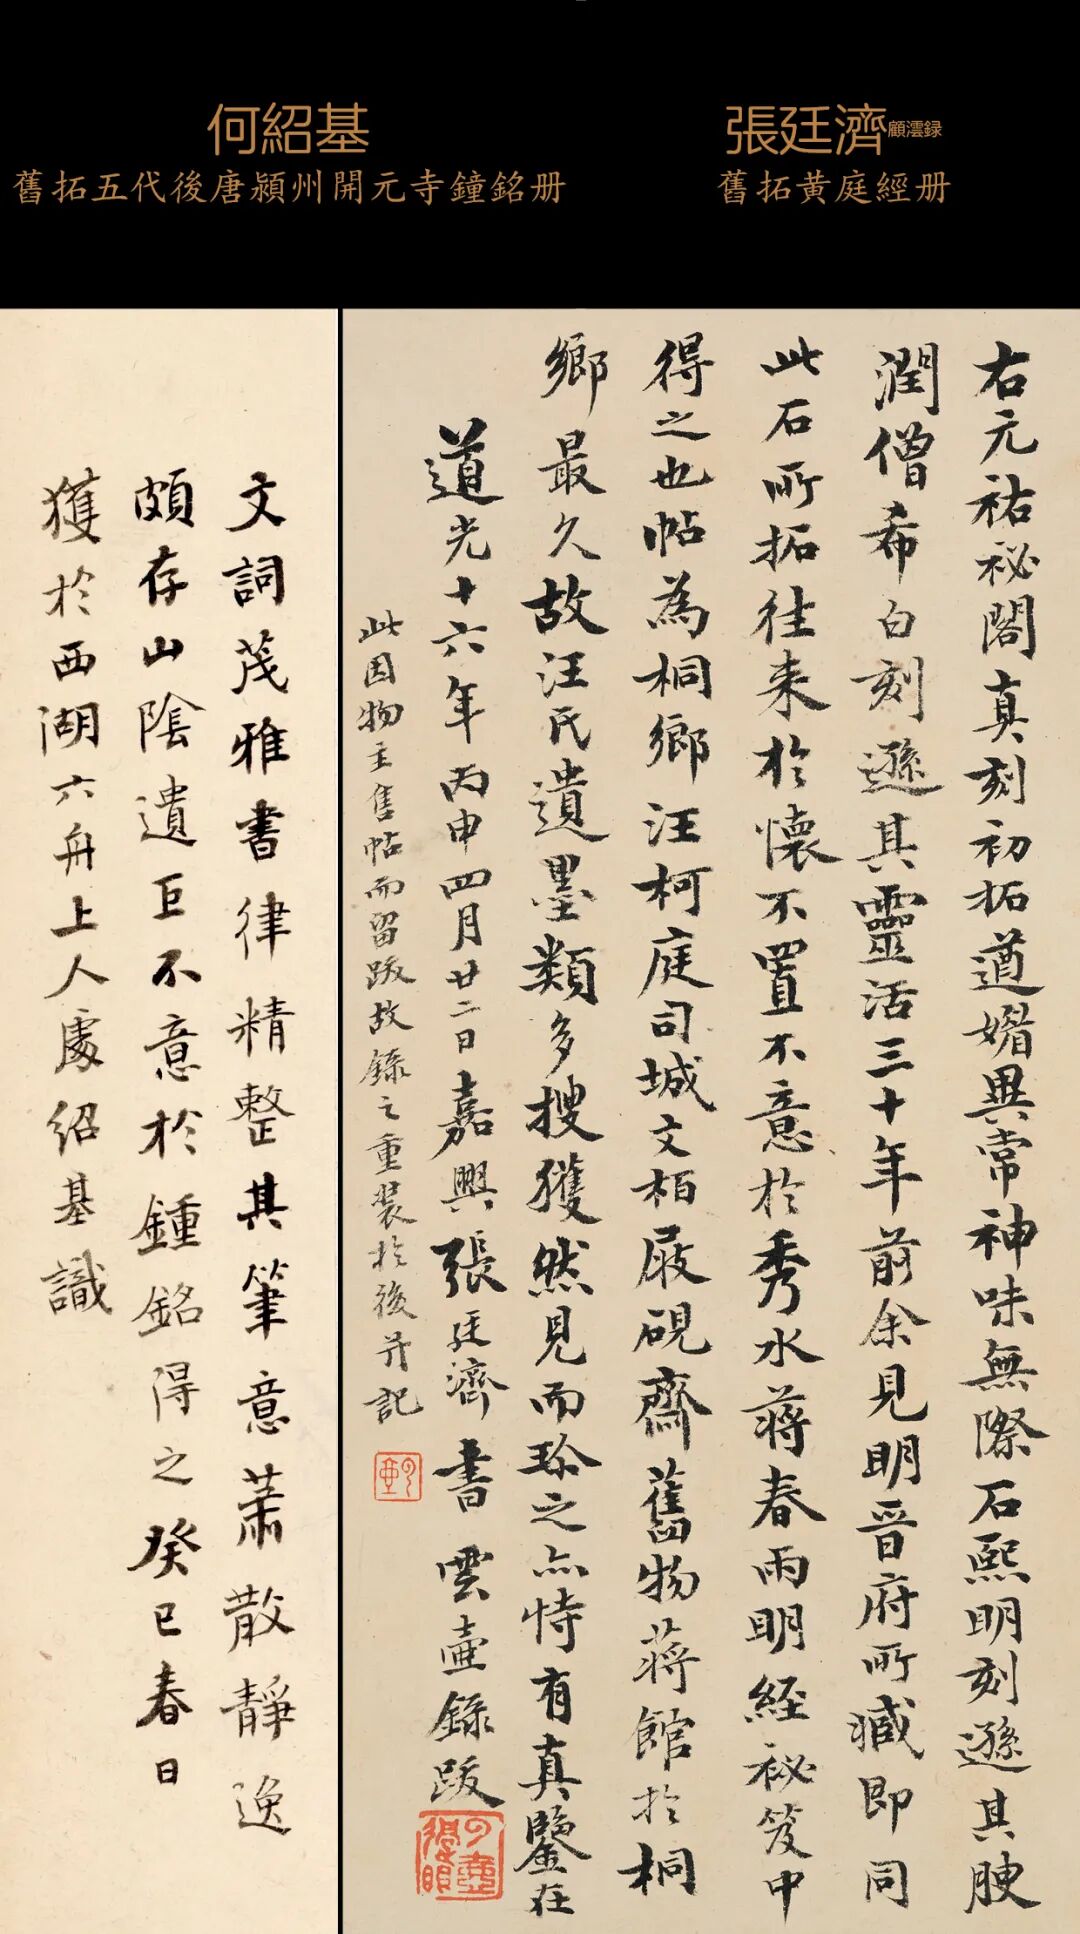 何紹基
舊拓五代後唐潁州開元寺鐘銘册
張廷濟顧澐録
舊拓黄庭經册
右元祐祕閣真刻初拓遒媚異常神味無際石熙明刻遜其腴
潤僧希白刻遜其靈活三十年前余見明晋府所臧即同
此石所拓往来於懷不置不意於秀水蔣春雨明經祕笈中
得之也帖為桐鄉汪柯庭司城文柏屐硯齋舊物蔣館於桐
鄉最久故汪氏遺墨類多搜獲然見而珎之亦恃有真鑒在
道光十六年丙申四月廿二日嘉興張廷濟書 雲壺錄跋
此因物主售帖而留跋故錄之重裝於後并記
文詞茂雅書律精整其筆意蕭散靜逸
頗存山陰遺巨不意於鍾銘得之癸巳春日
獲於西湖六舟上人處紹基識